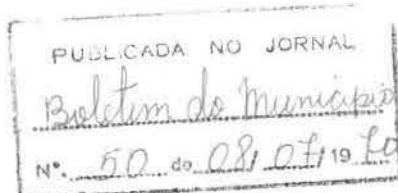 PUBLICADA NO JORNAL
Boletim do Municipio
Nº. 50 de 08/07/1970